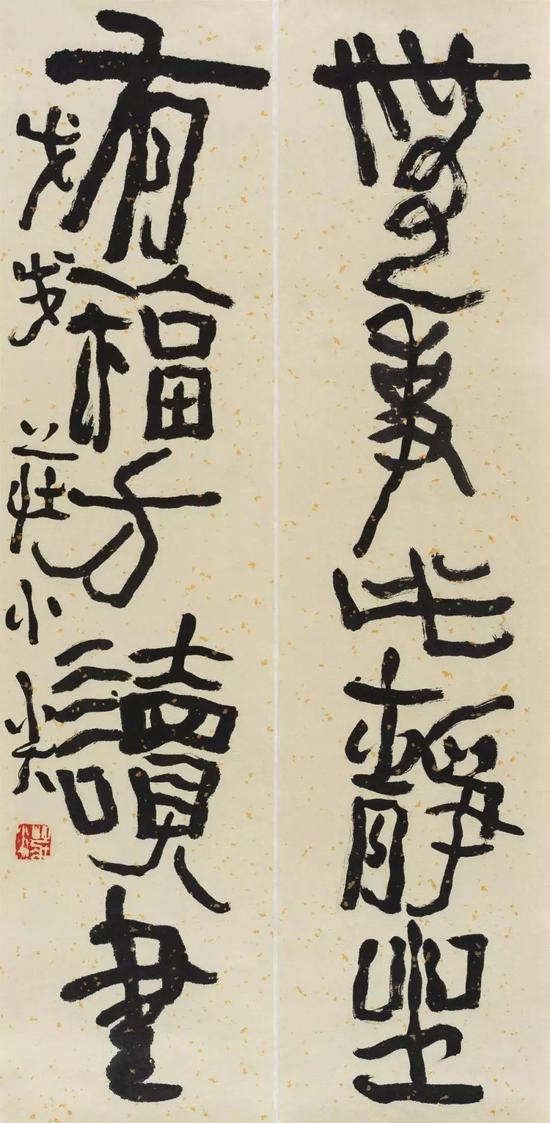 無事此靜坐
有福方讀書
戊戌 莊小尖